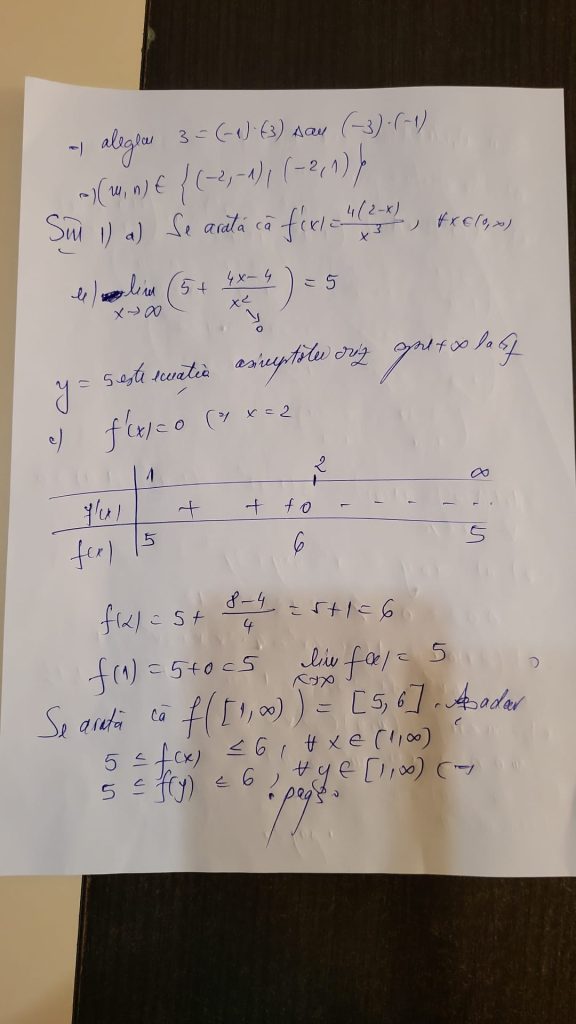 =) alegem 3 = (-1)·(-3) sau (-3)·(-1)
=) (m, n) ∈ {(-2, -1), (-2, 1)}
SIII 1) a) Se arată că f'(x) = 4(2-x)/x³, ∀x∈(0,∞)
b) lim x→∞ (5 + (4x-4)/x² ↘0) = 5
y = 5 este ecuația asimptotei oriz spre +∞ la Gf
c) f'(x) = 0 (=) x = 2
1 2 ∞
f'(x) + + + 0 - - - - ..
f(x) 5 6 5
f(2) = 5 + (8-4)/4 = 5+1 = 6
f(1) = 5+0 = 5 lim x→∞ f(x) = 5
Se arată că f([1,∞)) = [5,6]. Așadar
5 ≤ f(x) ≤ 6, ∀ x ∈ (1,∞)
5 ≤ f(y) ≤ 6, ∀ y ∈ [1,∞) (=)